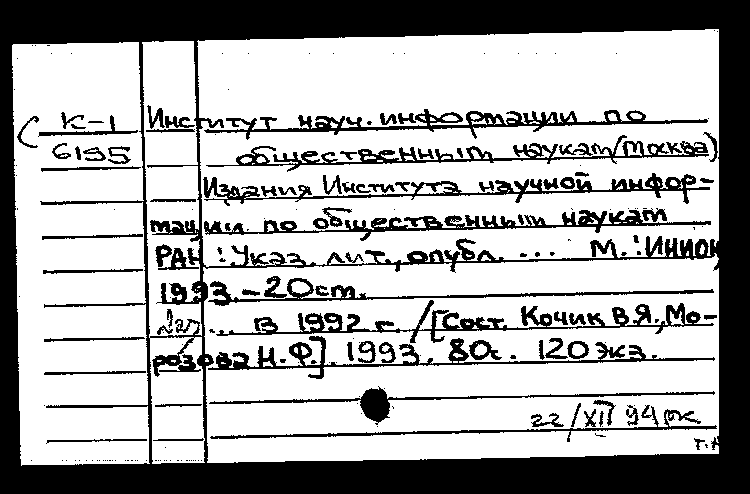 К-1 Институт науч. информации по
6195 общественным наукам (Москва)
Издания Института научной инфор-
мации по общественным наукам
РАН : Указ. лит., опубл. ... М. : ИНИОН,
1993. - 20 cm.
... в 1992 г. / [Сост. Кочик В.Я., Мо-
розова Н.Ф.]. 1993. 80с. 120 экз.
22/XII 94